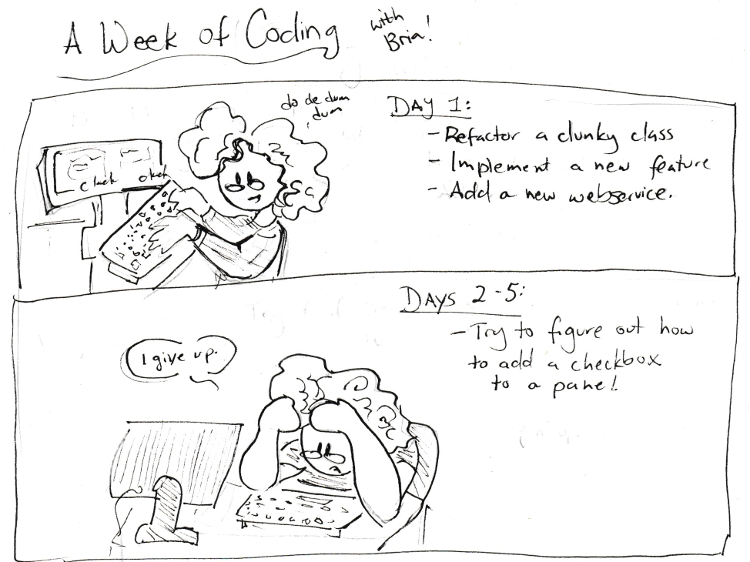 A Week of Coding
with
Bria!
do de dum
dum
DAY 1:
- Refactor a clunky class
- Implement a new feature
- Add a new webservice.
Clack clack
DAYS 2-5:
- Try to figure out how
to add a checkbox
to a panel
I give up.